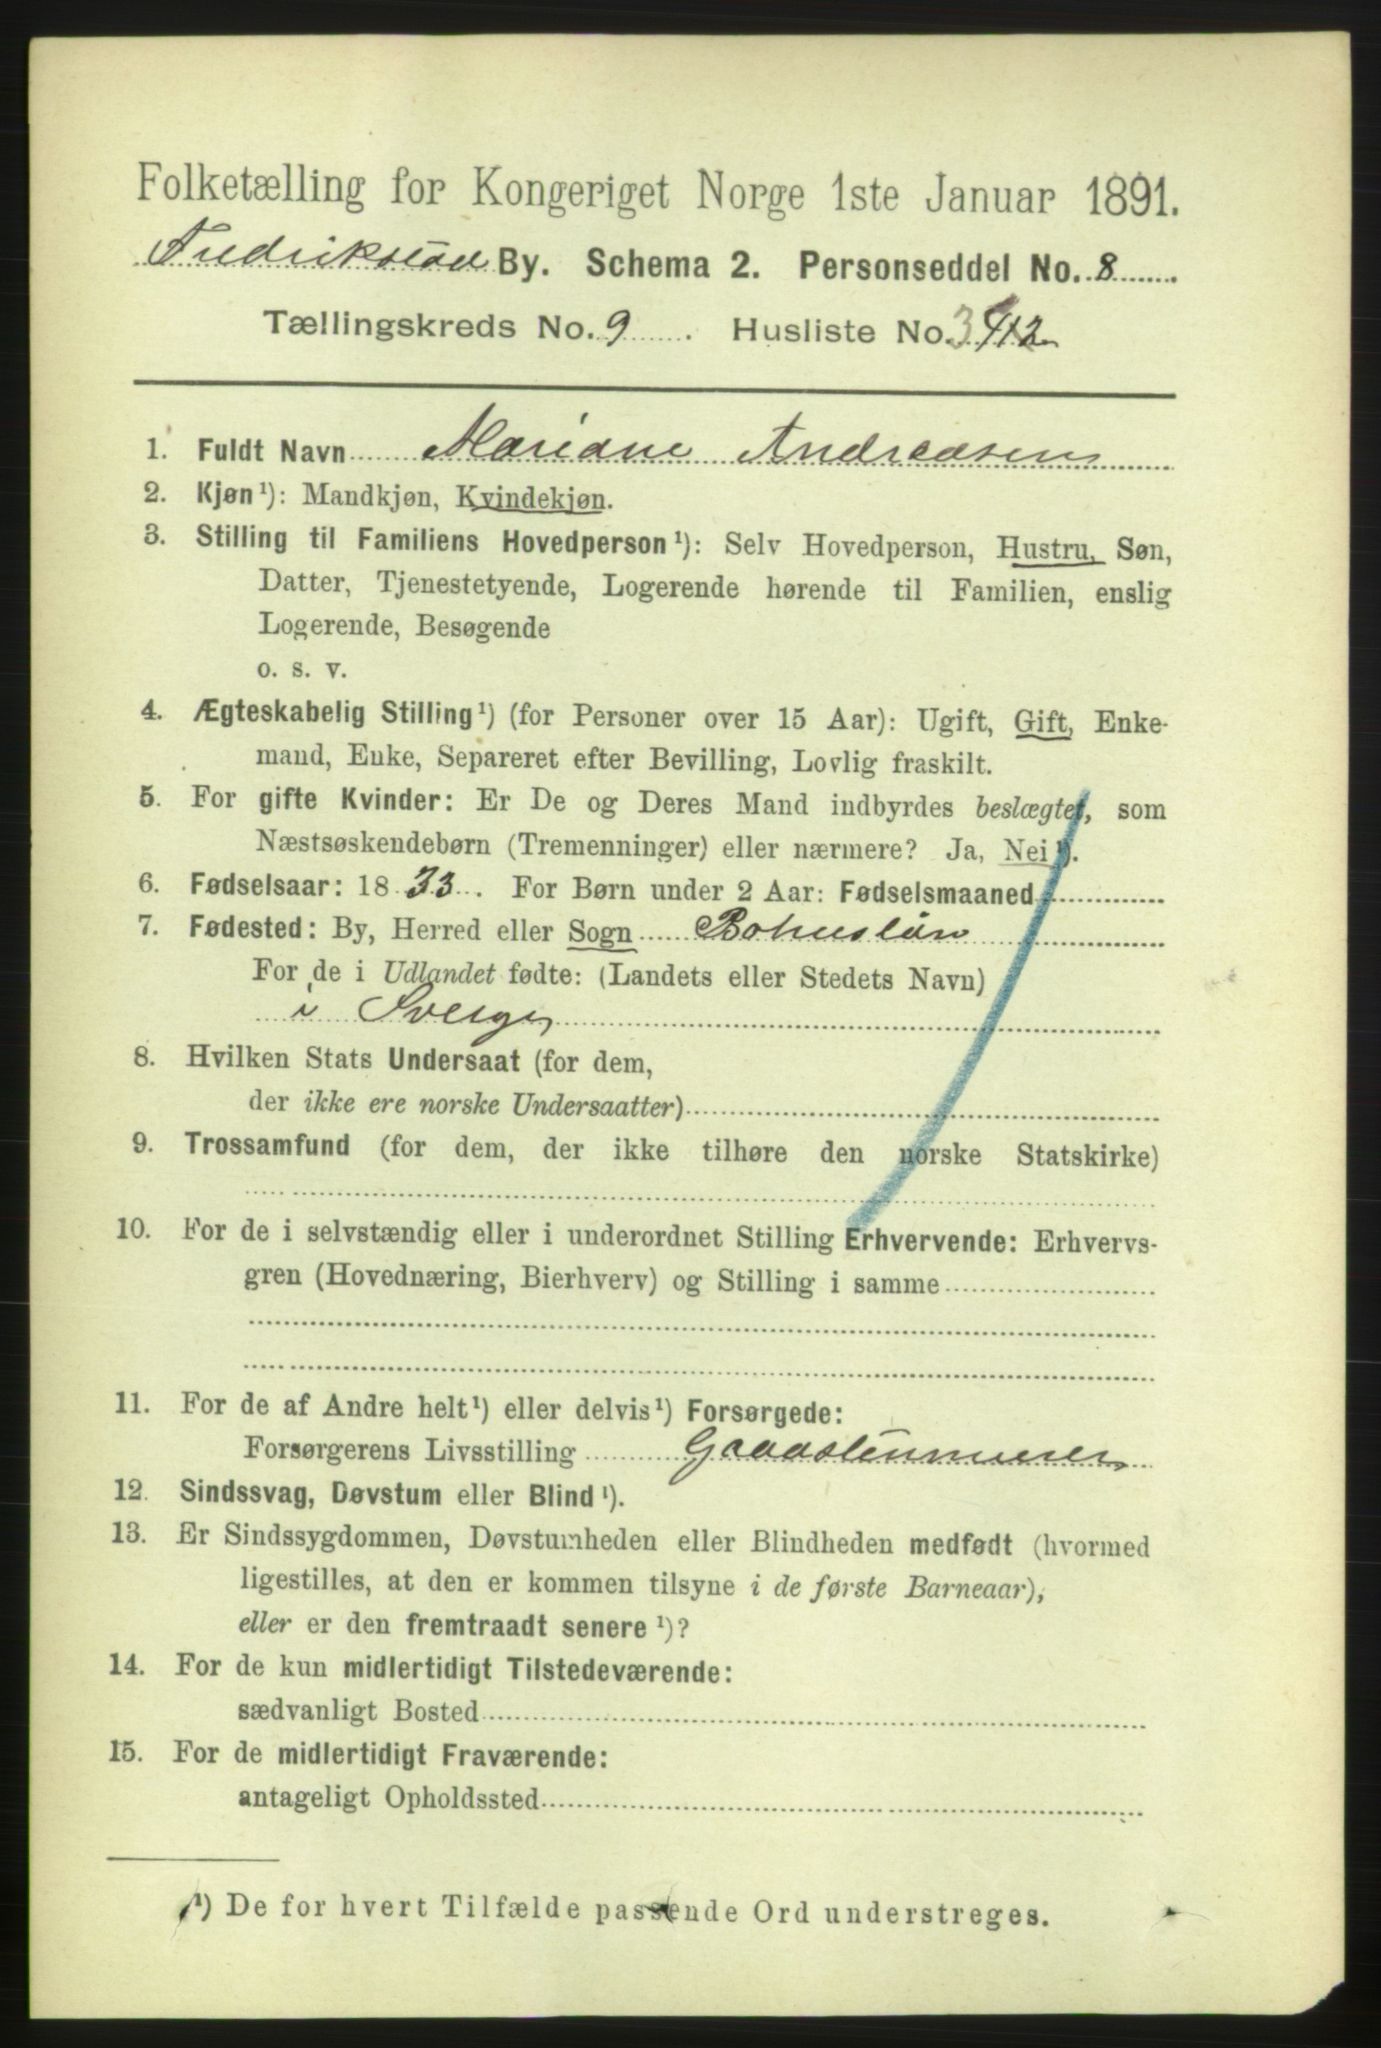 Folketælling for Kongeriget Norge 1ste Januar 1891.
Fredrikstad By. Schema 2. Personseddel No. 8
Tællingskreds No. 9. Husliste No.
1. Fuldt Navn Mariane Andreasen
2. Kjøn¹): Mandkjøn, Kvindekjøn.
3. Stilling til Familiens Hovedperson¹): Selv Hovedperson, Hustru, Søn,
Datter, Tjenestetyende, Logerende hørende til Familien, enslig
Logerende, Besøgende
o. s. v.
4. Ægteskabelig Stilling¹) (for Personer over 15 Aar): Ugift, Gift, Enke-
mand, Enke, Separeret efter Bevilling, Lovlig fraskilt.
5. For gifte Kvinder: Er De og Deres Mand indbyrdes beslægtet, som
Næstsøskendebørn (Tremenninger) eller nærmere? Ja, Nei¹).
6. Fødselsaar: 1833. For Børn under 2 Aar: Fødselsmaaned
7. Fødested: By, Herred eller Sogn Bohuslän
For de i Udlandet fødte: (Landets eller Stedets Navn)
i Sverge
8. Hvilken Stats Undersaat (for dem,
der ikke ere norske Undersaatter)
9. Trossamfund (for dem, der ikke tilhøre den norske Statskirke)
10. For de i selvstændig eller i underordnet Stilling Erhvervende: Erhvervs-
gren (Hovednæring, Bierhverv) og Stilling i samme
11. For de af Andre helt¹) eller delvis¹) Forsørgede:
Forsørgerens Livsstilling
12. Sindssvag, Døvstum eller Blind¹).
13. Er Sindssygdommen, Døvstumheden eller Blindheden medfødt (hvormed
ligestilles, at den er kommen tilsyne i de første Barneaar),
eller er den fremtraadt senere¹)?
14. For de kun midlertidigt Tilstedeværende:
sædvanligt Bosted
15. For de midlertidigt Fraværende:
antageligt Opholdssted
¹) De for hvert Tilfælde passende Ord understreges.